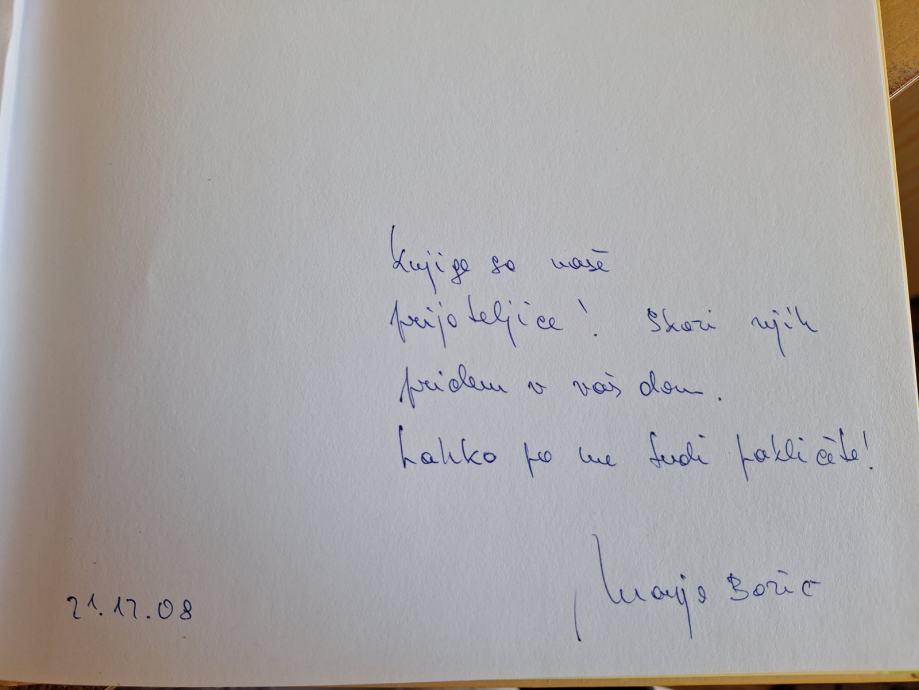 Knjige so naše
prijateljice! Skozi njih
pridem v vaš dom.
Lahko pa me tudi pokličete!
Marija Božič
21.12.08